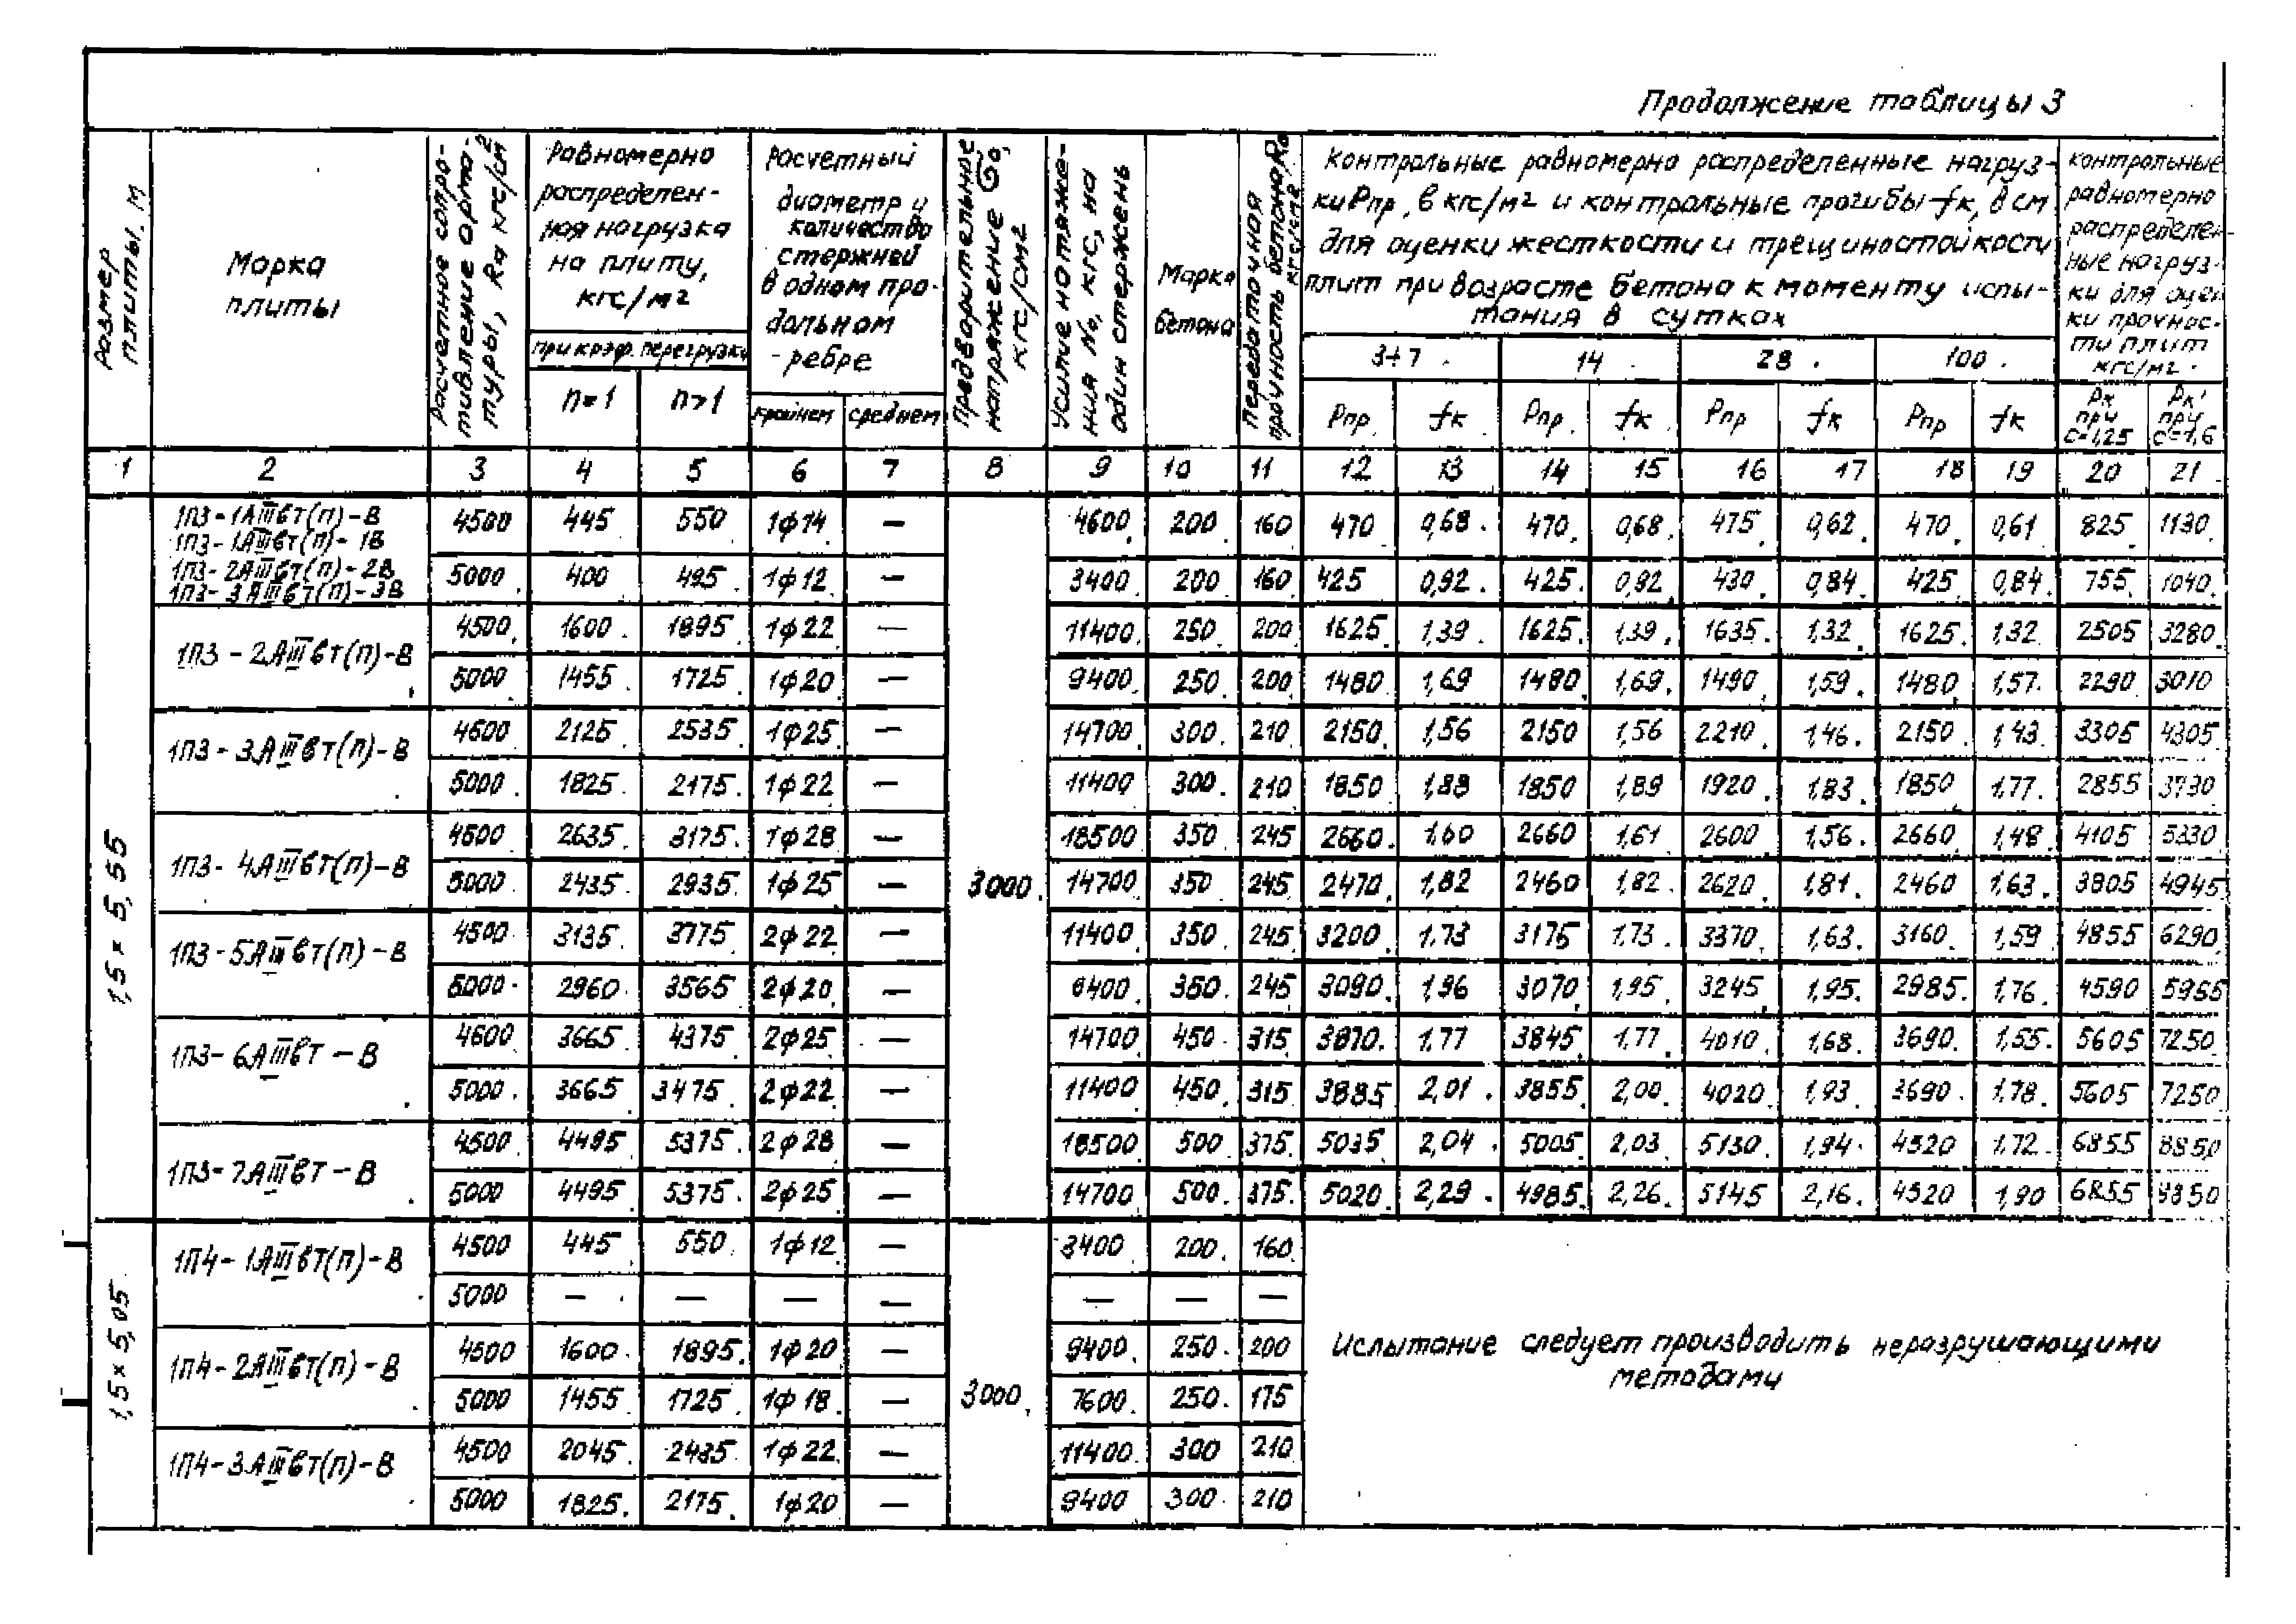 Продолжение таблицы 3
Размер плиты, м
Марка плиты
Расчетное сопротивление арматуры, Rа кгс/см2
Равномерно
распределен-
ная нагрузка
на плиту,
кгс/м2
при коэф. перегрузки
n=1
n>1
Расчетный
диаметр и
количество
стержней
в одном про-
дольном
ребре
крайнем
среднем
Предварительное напряжение σ0, кгс/см2
Усилие натяжения N0, кгс, на один стержень
Марка
бетона
Передаточная прочность бетона, R0 кгс/см2
Контрольные равномерно распределенные нагруз-
ки Рпр, в кгс/м2 и контрольные прогибы fк, в см
для оценки жесткости и трещиностойкости
плит при возрасте бетона к моменту испы-
тания в сутках
3÷7 14 28 100
Рпр fк Рпр fк Рпр fк Рпр fк
контрольные
равномерно
распределен-
ные нагруз-
ки для оцен
ки прочнос-
ти плит
кгс/м2
Рк при с=1,25
Рк' при с=1,6
1 2 3 4 5 6 7 8 9 10 11 12 13 14 15 16 17 18 19 20 21
1,5 × 5,55
3000
1П3-1АIIIвт(п)-В
1П3-1АIIIвт(п)-1В
4500 445 550 1ф14 — 4600 200 160 470 0,68 470 0,68 475 0,62 470 0,61 825 1130
1П3-2АIIIвт(п)-2В
1П3-3АIIIвт(п)-3В
5000 400 495 1ф12 — 3400 200 160 425 0,92 425 0,92 430 0,84 425 0,84 755 1040
1П3-2АIIIвт(п)-В
4500 1600 1895 1ф22 — 11400 250 200 1625 1,39 1625 1,39 1635 1,32 1625 1,32 2505 3280
5000 1455 1725 1ф20 — 9400 250 200 1480 1,69 1480 1,69 1490 1,59 1480 1,57 2290 3010
1П3-3АIIIвт(п)-В
4500 2125 2535 1ф25 — 14700 300 210 2150 1,56 2150 1,56 2210 1,46 2150 1,43 3305 4305
5000 1825 2175 1ф22 — 11400 300 210 1850 1,89 1850 1,89 1920 1,83 1850 1,77 2855 3730
1П3-4АIIIвт(п)-В
4500 2635 3175 1ф28 — 18500 350 245 2660 1,60 2660 1,61 2600 1,56 2660 1,48 4105 5330
5000 2435 2935 1ф25 — 14700 350 245 2470 1,82 2460 1,82 2620 1,81 2460 1,63 3805 4945
1П3-5АIIIвт(п)-В
4500 3135 3775 2ф22 — 11400 350 245 3200 1,73 3175 1,73 3370 1,63 3160 1,59 4855 6290
5000 2960 3565 2ф20 — 9400 350 245 3090 1,96 3070 1,95 3245 1,95 2985 1,76 4590 5955
1П3-6АIIIвт-В
4500 3665 4375 2ф25 — 14700 450 315 3870 1,77 3845 1,77 4010 1,68 3690 1,55 5605 7250
5000 3665 3475 2ф22 — 11400 450 315 3885 2,01 3855 2,00 4020 1,93 3690 1,78 5605 7250
1П3-7АIIIвт-В
4500 4495 5375 2ф28 — 18500 500 375 5035 2,04 5005 2,03 5130 1,94 4520 1,72 6855 8850
5000 4495 5375 2ф25 — 14700 500 375 5020 2,29 4985 2,26 5145 2,16 4520 1,90 6855 8850
1,5 × 5,05
3000
1П4-1АIIIвт(п)-В
4500 445 550 1ф12 — 3400 200 160
5000 — — — — — — —
1П4-2АIIIвт(п)-В
4500 1600 1895 1ф20 — 9400 250 200
5000 1455 1725 1ф18 — 7600 250 175
1П4-3АIIIвт(п)-В
4500 2045 2435 1ф22 — 11400 300 210
5000 1825 2175 1ф20 — 9400 300 210
Испытание следует производить неразрушающими
методами